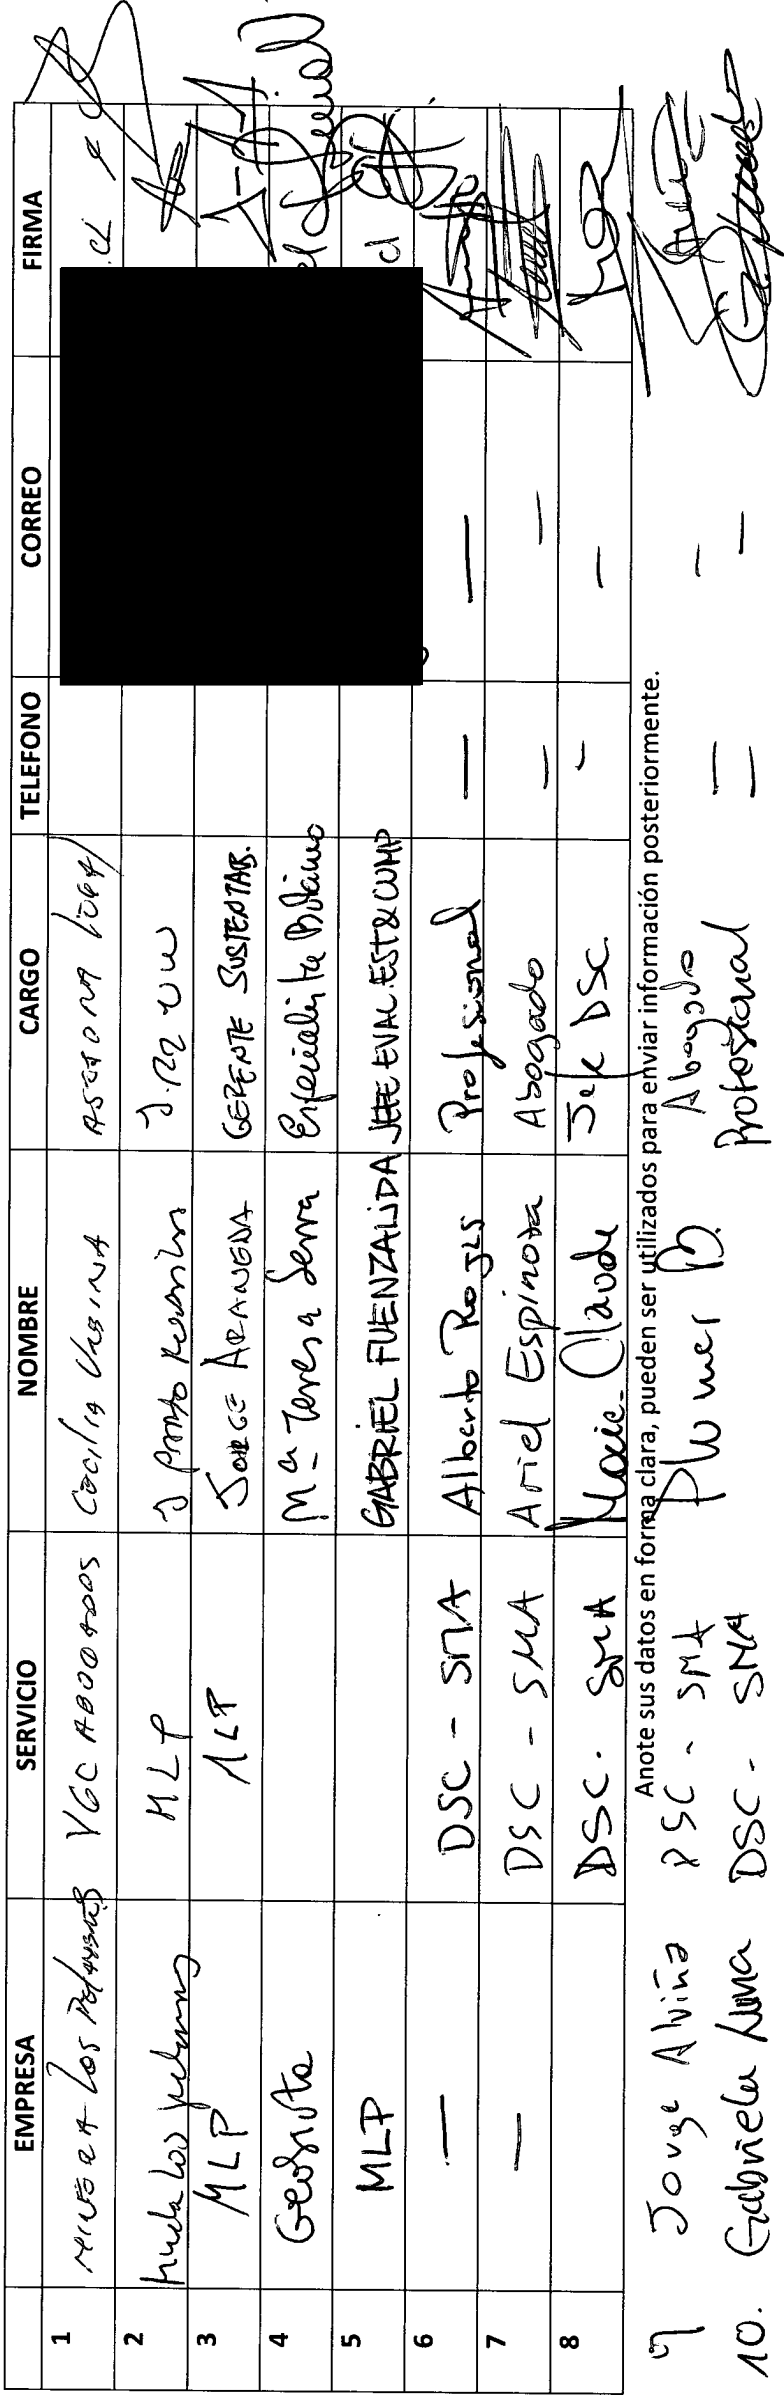 EMPRESA SERVICIO NOMBRE CARGO TELEFONO CORREO FIRMA
1 MINERA LOS PELAMBRES VGC ABOGADOS Cecilia Urbina ASESORA LEGAL .cl
2 Los MLP
3 MLP MLP JORGE ARANGDA GERENTE SUSTENTAB.
4 Geobiota Mª Teresa Serra Especialista Botánico el
5 MLP GABRIEL FUENZALIDA JEFE EVAL. EST & CUMP cl
6 — DSC - SMA Alberto Rojas Profesional — —
7 — DSC - SMA Ariel Espinoza Abogado — —
8 DSC. SMA Marie-Claude Jefe DSC - —
Anote sus datos en forma clara, pueden ser utilizados para enviar información posteriormente.
9 Jorge Alviña DSC - SMA Abogado — —
10. Gabriela Luna DSC - SMA Profesional — —